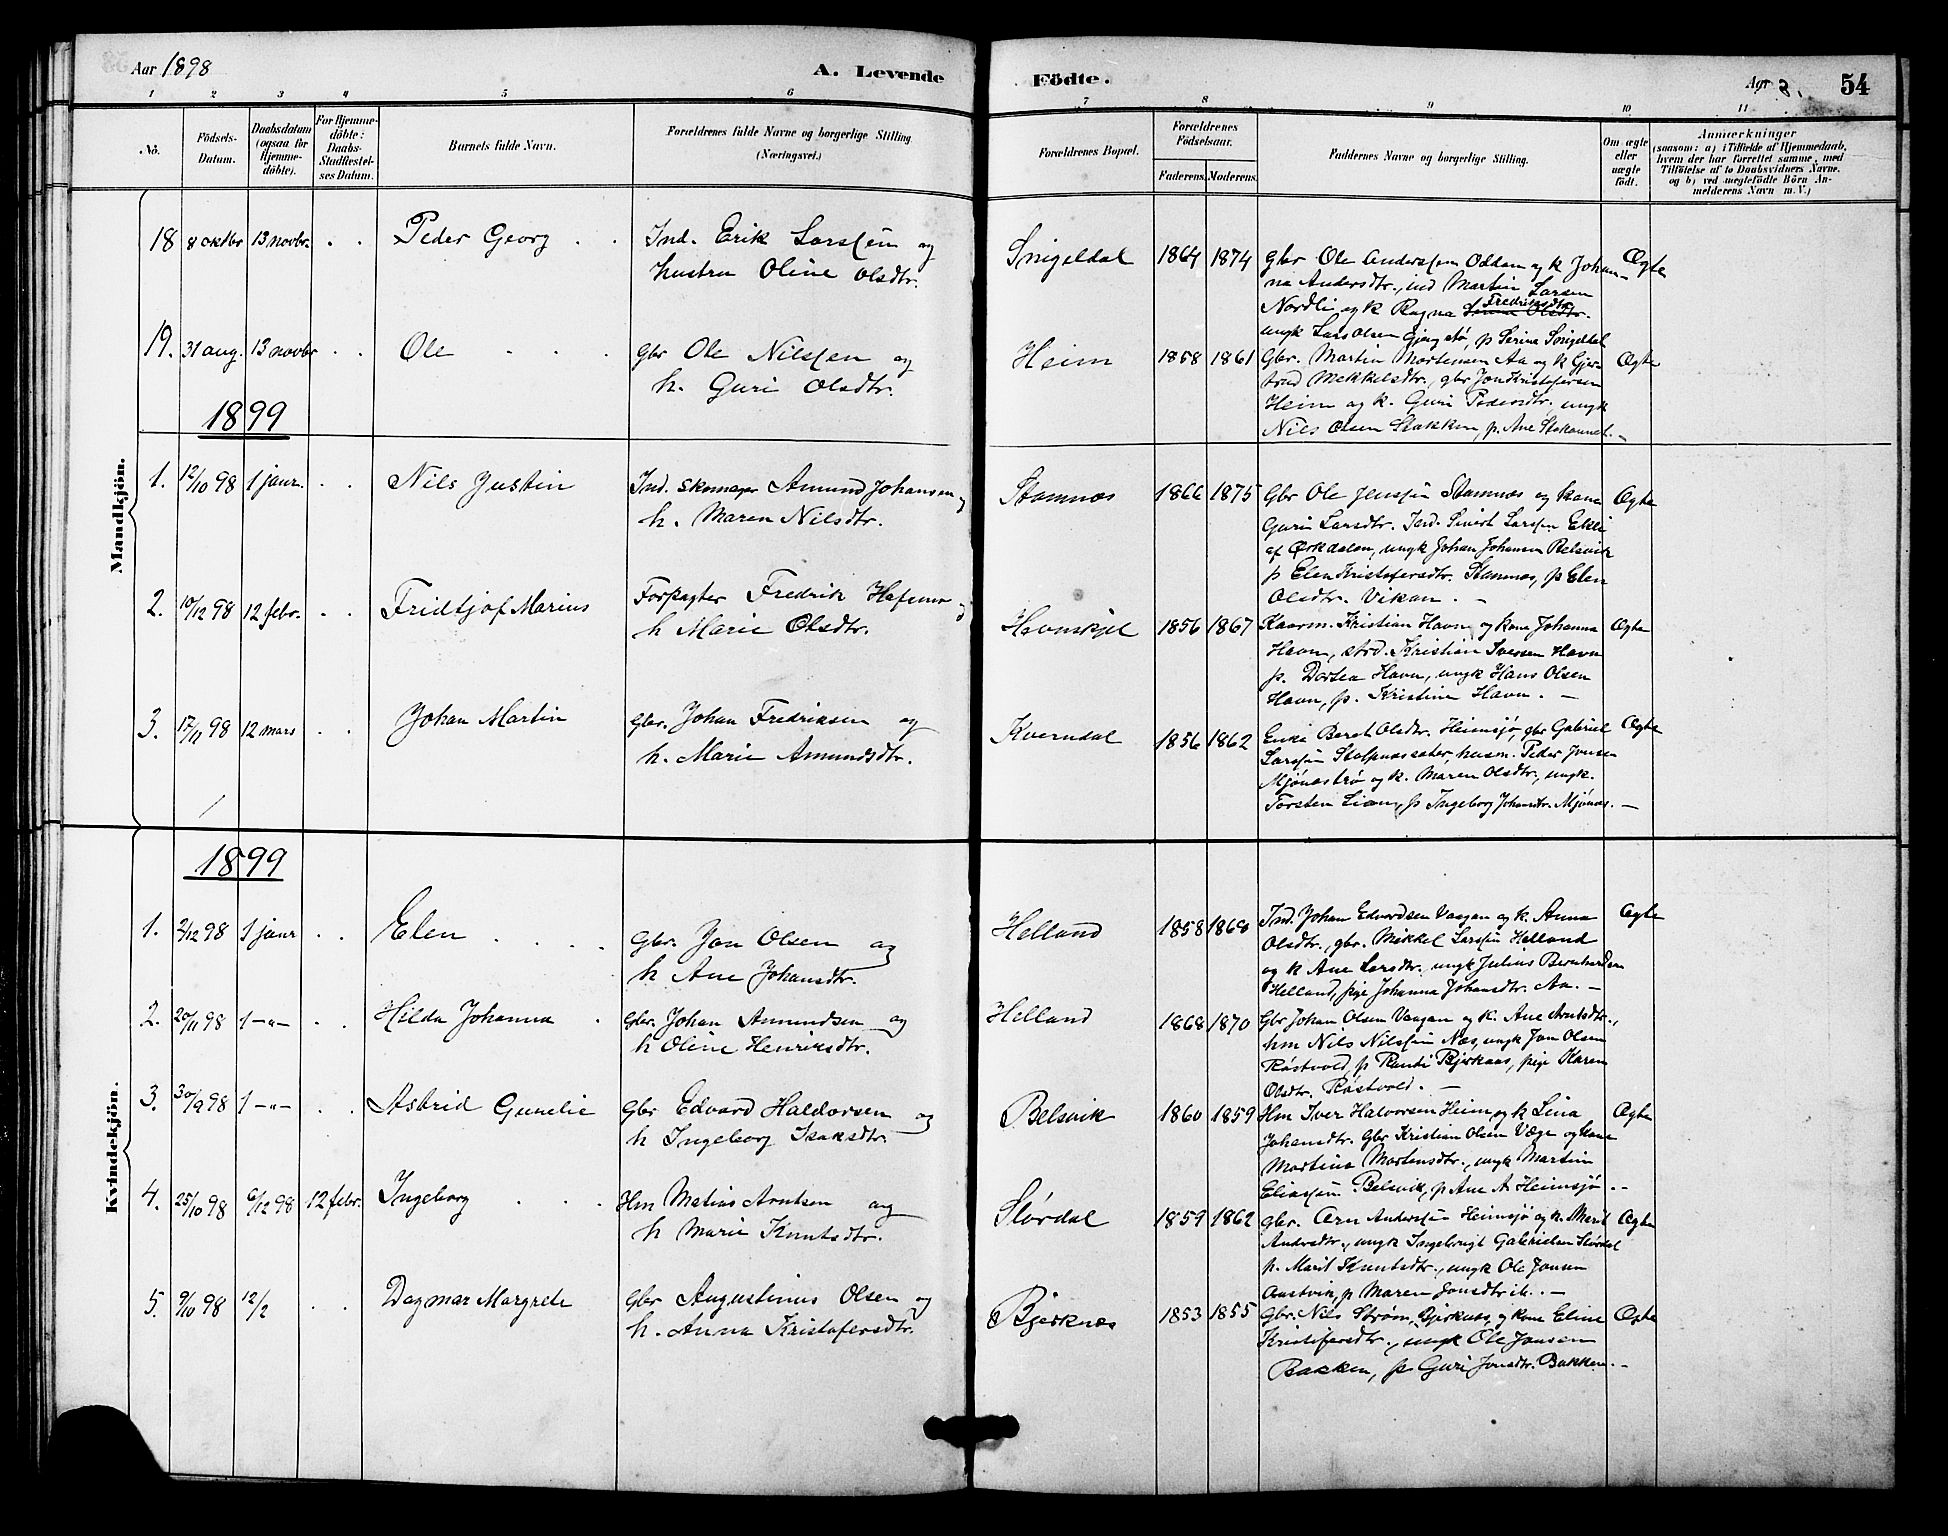 Aar 1898
A. Levende Födte.
Aar 8.
54
1 2 3 4 5 6 7 8 9 10 11
Nö.
Födsels-Datum.
Daabsdatum (ogsaa for Hjemme-döbte).
For Hjemme-döbte: Daabs-Stadfæstel-ses Datum.
Barnets fulde Navn.
Forældrenes fulde Navne og borgerlige Stilling (Næringsvei.)
Forældrenes Bopæl.
Forældrenes Födselsaar.
Faderens. Moderens.
Faddernes Navne og borgerlige Stilling.
Om ægte eller uægte födt.
Anmærkninger
(saasom: a) i Tilfælde af Hjemmedaab, hvem der har forrettet samme, med Tilföielse af to Daabsvidners Navne. og b) ved uægtefödte Börn An-melderens Navn m. V.)
Mandkjön.
18 8 oktbr 13 novbr. . . Peder Georg . . Ind. Erik Larssen og
hustru Oline Olsdtr.
Snigeldal 1864 1874 Gbr Ole Anderssen Oddan og k Johan- Ægte
na Andersdtr., ind Martin Larsen
Nordli og k Ragna Fredriksdtr.
ungk Lars Olsen Gjengstø, p Serina Snigeldal
19. 31 aug. 13 novbr . . Ole . . . Gbr Ole Nilssen og
h. Guri Olsdtr.
Heim 1858 1861 Gbr. Martin Mortensen Aa og k Gjer- Ægte
trud Mekkelsdtr., gbr Jon Kristofersen
Heim og k. Guri Pedersdtr. ungk
Nils Olsen Stakken, p. Ane Stokaunet. —
1899
1. 12/10 98 1 janr. . . Nils Justin Ind. Skomager Amund Johansen og
h. Maren Nilsdtr.
Stamnes 1866 1875 Gbr Ole Jenssen Stamnæs og kone Ægte
Guri Larsdtr. Ind. Sivert Larssen Ekli
af Ørkdalen, ungk Johan Johansen Belsvik
p Elen Kristofersdtr. Stamnæs, p Elen
Olsdtr. Vikan. —
2. 10/12 98 12 febr. . . Fridtjof Marius Forpagter Fredrik Hafsmo og
h Marie Olsdtr.
Havnskjel 1856 1867 Kaarm. Kristian Havn og kone Johanna Ægte
Havn, strd. Kristian Iversen Havn
p. Dortea Havn, ungk Hans Olsen
Havn, p. Kristine Havn. —
3. 17/11 98 12 mars . . Johan Martin Gbr. Johan Fredriksen og
h. Marie Amundsdtr.
Kverndal 1856 1862 Enke Beret Olsdtr. Heimsjø, gbr Gabriel Ægte
Larssen Stolpnessæter, husm. Peder Jonsen
Mjønestrø og k. Maren Olsdtr., ungk.
Torsten Lian, p Ingeborg Johansdtr. Mjønes. —
Kvindekjön.
1899
1. 2/12 98 1 janr . . Elen . . . . Gbr. Jon Olsen og
h Ane Johansdtr.
Helland 1858 1868 Ind. Johan Edvardsen Vaagan og k. Anna Ægte
Olsdtr., gbr. Mikkel Larssen Helland
og k Ane Larsdtr. ungk Julius Bernhardsen
Helland, pige Johanna Johansdtr. Aa. —
2. 20/11 98 1 —"— . . Hilda Johanna . Gbr. Johan Amundsen og
h Oline Henriksdtr.
Helland 1868 1870 Gbr Johan Olsen Vaagan og k. Ane Arntsdtr.,
hm Nils Nilssen Næs, ungk Jon Olsen
Røstvold, p Randi Bjerkaas, pige Karen
Olsdtr. Røstvold. —
3. 30/9 98 1 —"— . . Astrid Gunelie Gbr Edvard Haldorsen og
h Ingeborg Isaksdtr.
Belsvik 1860 1859 Hm Iver Halvorsen Heim og k Lina Ægte
Johansdtr. Gbr Kristian Olsen Væge og kone
Martina Mortensdtr., ungk Martin
Eliassen Belsvik, p Ane A Heimsjø . —
4. 25/10 98 6/12 98 12 febr. Ingeborg . . Hm Matias Arntsen og
h Marie Knutsdtr.
Størdal 1859 1862 gbr. Arn Anderssen Heimsjø og k. Marit Ægte
Andersdtr., ungk Ingebrigt Gabrielsen Størdal
p. Marit Knutsdtr., ungk Ole Jonsen
Aastvik, p Maren Jonsdtr ib.. —
5. 9/10 98 12/2 . . Dagmar Margrete Gbr Augustinus Olsen og
h. Anna Kristofersdtr.
Bjerknes 1853 1855 Gbr. Nils Strøm, Bjerknes og kone Eline Ægte
Kristofersdtr., ungk Ole Jonsen
Bakken, p Guri Jonsdtr. Bakken. —